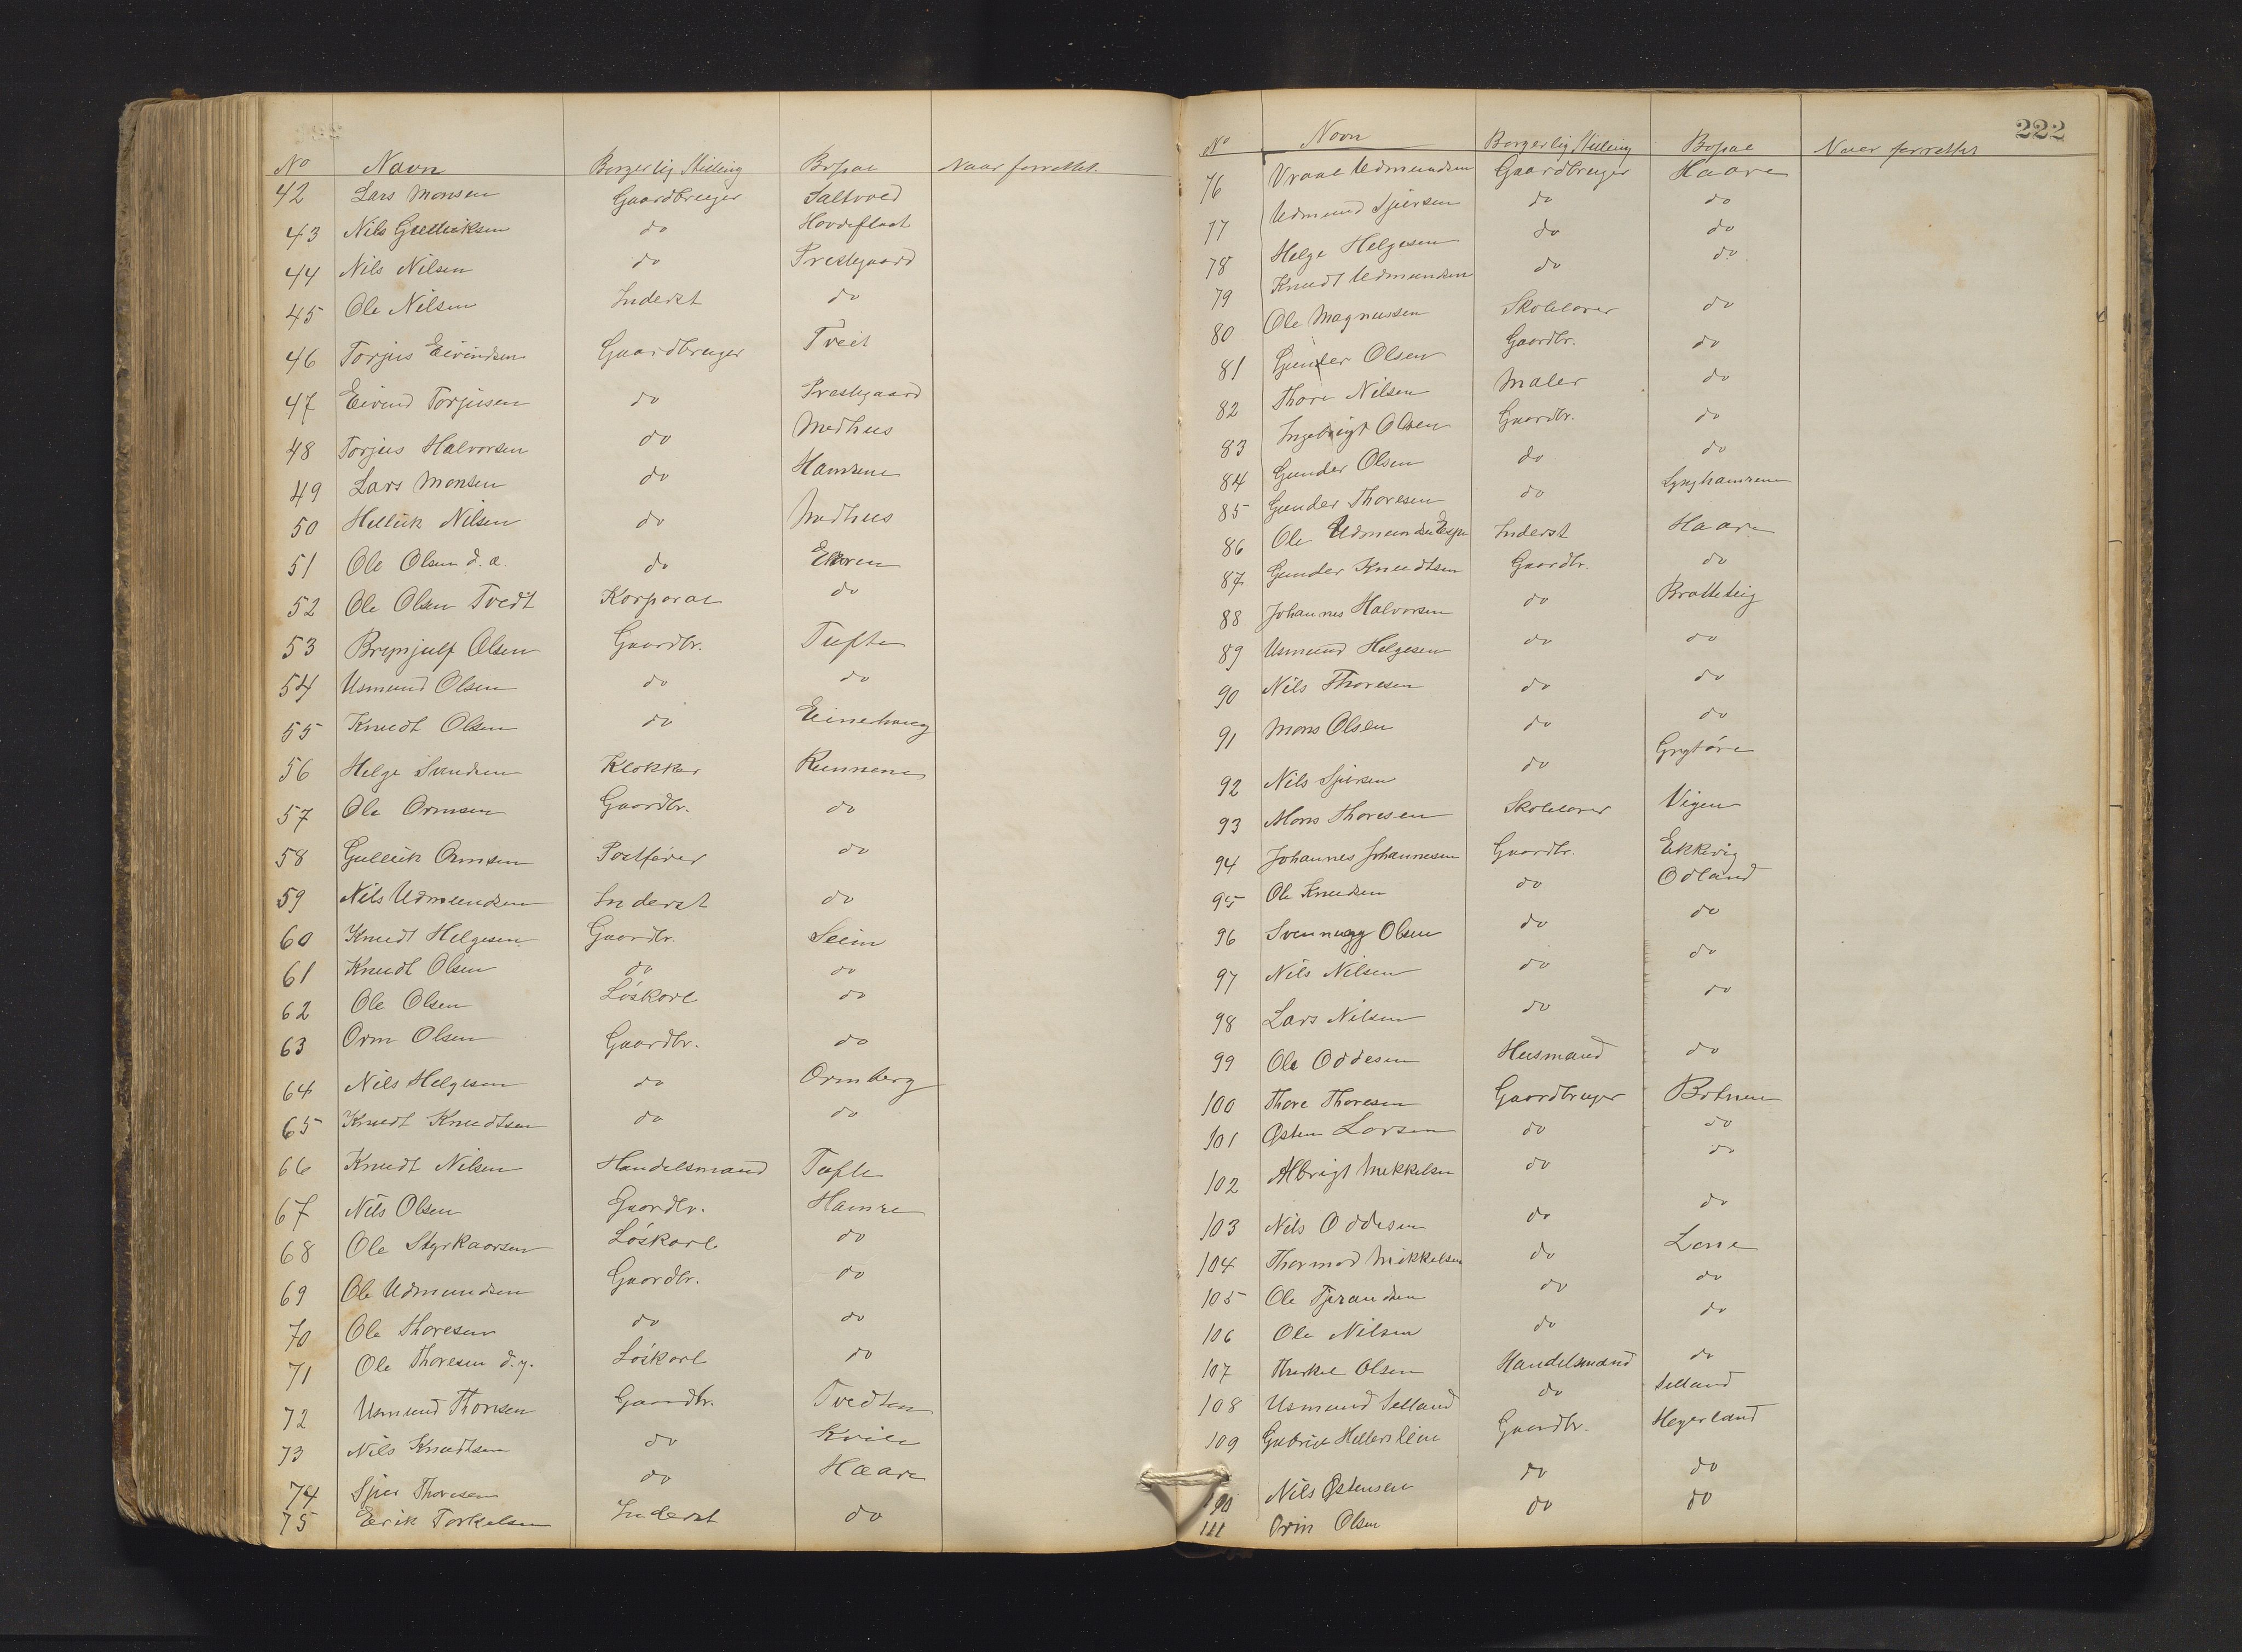 No Navn Borgerlig Stilling Bopæl Naar forrettet.
42 Lars Monsen Gaardbruger Saltvold
43 Nils Gulleiksen do Hovdeflaat
44 Nils Nilsen do Prestegaard
45 Ole Nilsen Inderst do
46 Torjus Eivindsen Gaardbruger Tveit
47 Eivind Torjusen do Prestegaard
48 Torjus Halvorsen do Medhus
49 Lars Monsen do Hamrene
50 Helleik Nilsen do Medhus
51 Ole Olsen d. æ. do
52 Ole Olsen Tvedt Korporal do
53 Brynjulf Olsen Gaardbr. Tufte
54 Usmund Olsen do do
55 Knudt Olsen do Einerhaug
56 Helge Svendsen Klokker Runnene
57 Ole Ormsen Gaardbr. do
58 Gulleik Ormsen Postfører do
59 Nils Udmundsen Inderst do
60 Knudt Helgesen Gaardbr. Seim
61 Knudt Olsen do do
62 Ole Olsen Løskarl do
63 Orm Olsen Gaardbr. do
64 Nils Helgesen do Ormberg
65 Knudt Knudtsen do do
66 Knudt Nilsen Handelsmand Tufte
67 Nils Olsen Gaardbr. Hamre
68 Ole Styrkaarsen Løskarl do
69 Ole Udmundsen Gaardbr. do
70 Ole Thoresen do do
71 Ole Thoresen d.y. Løskarl do
72 Usmund Thoresen Gaardbr. Tvedten
73 Nils Knudtsen do Kvile
74 Sjur Thoresen do Haare
75 Eirik Torkelsen Inderst do
222
No Navn Borgerlig Stilling Bopæl Naar forrettet
76 Vraal Udmundsen Gaardbruger Haare
77 Udmund Sjursen do do
78 Helge Helgesen do do
79 Knudt Udmundsen do do
80 Ole Magnussen Skolelærer do
81 Gunder Olsen Gaardbr. do
82 Thore Nilsen Maler do
83 Ingebrigt Olsen Gaardbr. do
84 Gunder Olsen do do
85 Gunder Thoresen do Lynghamrene
86 Ole Udmundsen Espe Inderst Haare
87 Gunder Knudtsen Gaardbr. do
88 Johannes Halvorsen do Bratteteig
89 Usmund Helgesen do do
90 Nils Thoresen do do
91 Mons Olsen do do
92 Nils Sjursen do Grytøre
93 Mons Thoresen Skolelærer Vigen
94 Johannes Johannesen Gaardbr. Ekkevig
95 Ole Knudsen do Odland
96 Svennugg Olsen do do
97 Nils Nilsen do do
98 Lars Nilsen do do
99 Ole Oddesen Husmand do
100 Thore Thoresen Gaardbruger Botnen
101 Østen Larsen do do
102 Albrigt Mikkelsen do do
103 Nils Oddesen do do
104 Thormod Mikkelsen do Lone
105 Ole Tjerandsen do do
106 Ole Nilsen do do
107 Thorkel Olsen Handelsmand do
108 Usmund Selland do Selland
109 Gabriel Hellersli Gaardbr. Hegerland
110 Nils Østensen do do
111 Orm Olsen do do